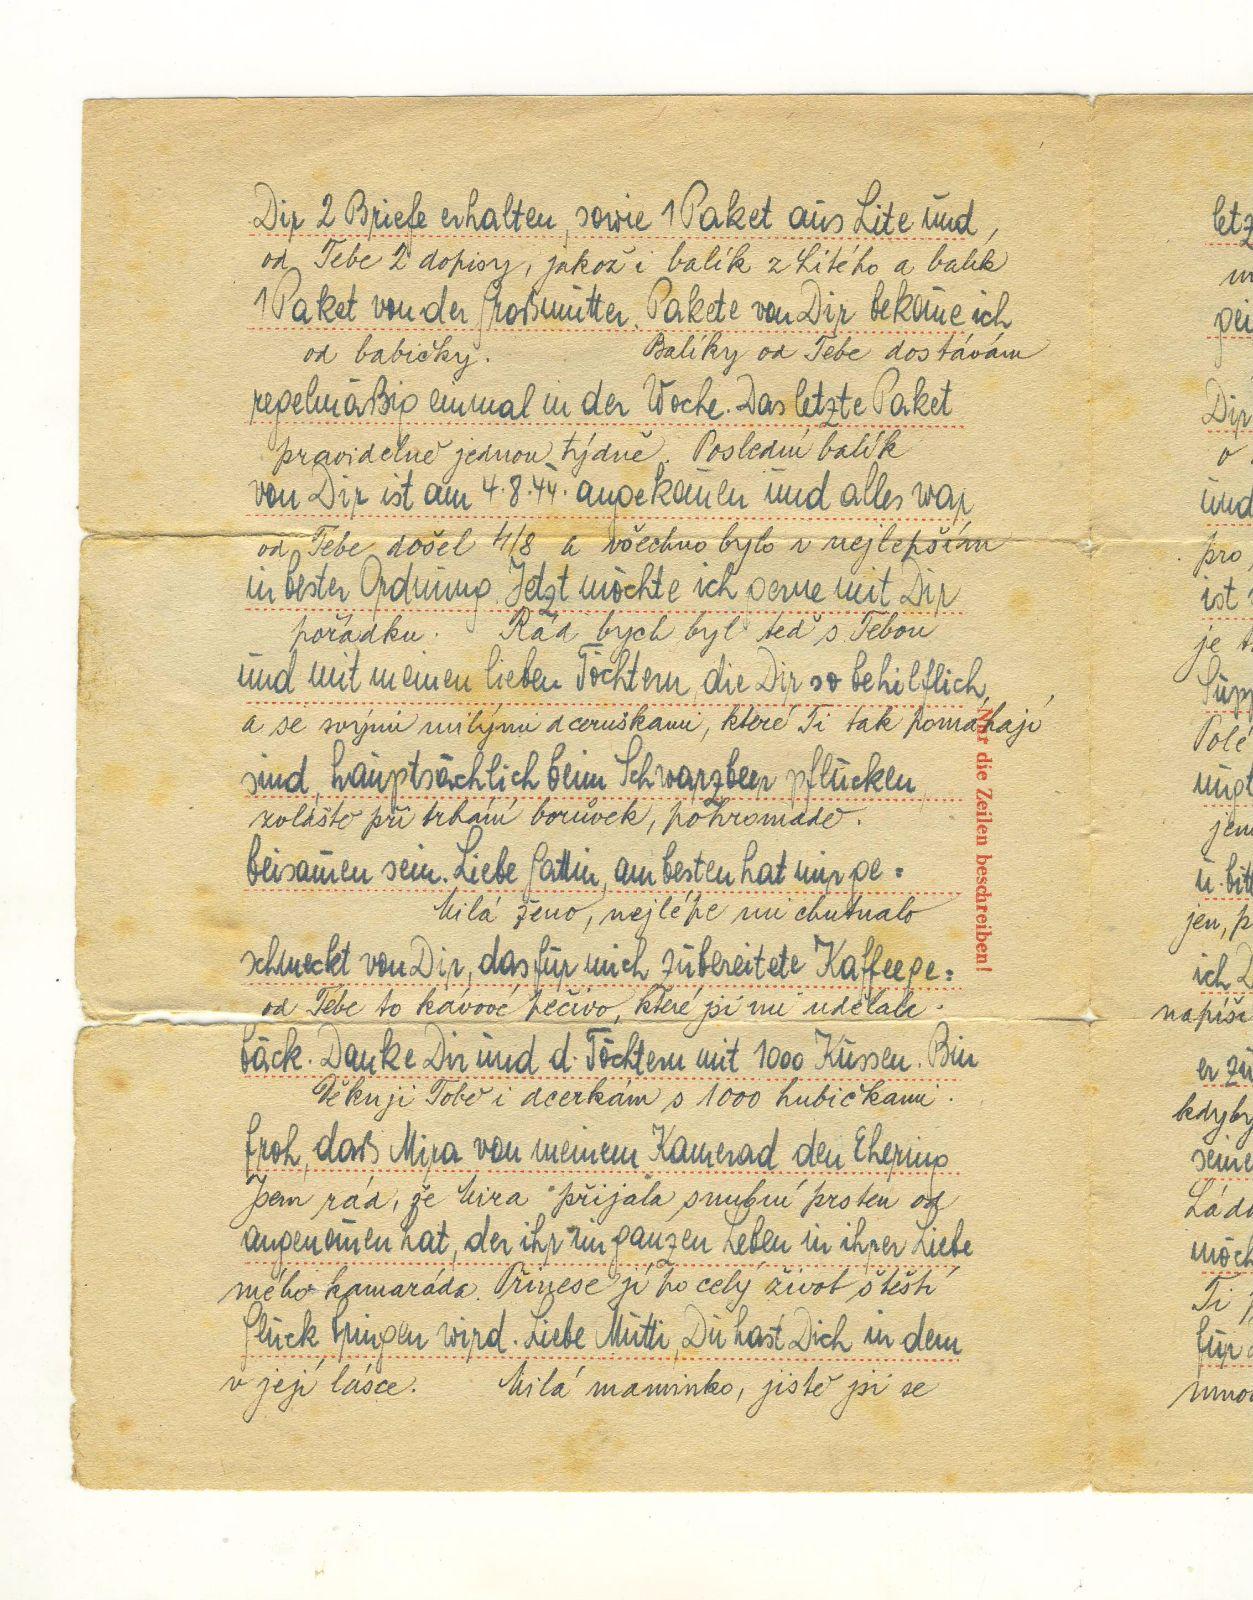 Dir 2 Briefe erhalten, sowie 1 Paket aus Lite und
od Tebe 2 dopisy, jakož i balík z Litého a balík
1 Paket von der Großmutter. Pakete von Dir bekom̄e ich
od babičky. Balíky od Tebe dostávám
regelmäßig einmal in der Woche. Das letzte Paket
pravidelně jednou týdně. Poslední balík
von Dir ist am 4.8.44. angekom̄en und alles war
od Tebe došel 4/8 a všechno bylo v nejlepším
in bester Ordnung. Jetzt möchte ich gerne mit Dir
pořádku. Rád bych byl teď s Tebou
und mit meinen lieben Töchtern, die Dir so behilflich
a se svými milými dceruškami, které Ti tak pomáhají
sind, hauptsächlich beim Schwarzbeer pflücken
zvláště při trhání borůvek, pohromadě.
beisam̄en sein. Liebe Gattin, am besten hat mir ge=
Milá ženo, nejlépe mi chutnalo
schmeckt von Dir, das für mich zubereitete Kaffeege=
od Tebe to kávové pečivo, které jsi mi udělala.
bäck. Danke Dir und d. Töchtern mit 1000 Küssen. Bin
Děkuji Tobě i dcerkám s 1000 hubičkami.
froh, daß Mira von meinem Kamerad den Ehering
Jsem rád, že Mira přijala snubní prsten od
angenom̄en hat, der ihr im ganzen Leben in ihrer Liebe
mého kamaráda. Přinese jí po celý život štěstí
Glück bringen wird. Liebe Mutti, Du hast Dich in dem
v její lásce. Milá maminko, jistě jsi se
Nur die Zeilen beschreiben!
letz
Dir
o
und
pro
ist
je
Polé
jem
u. bitt
jen, p
ich
napíši
er zu
kdyby
seine
Ládi
möch
Ti
für
mno